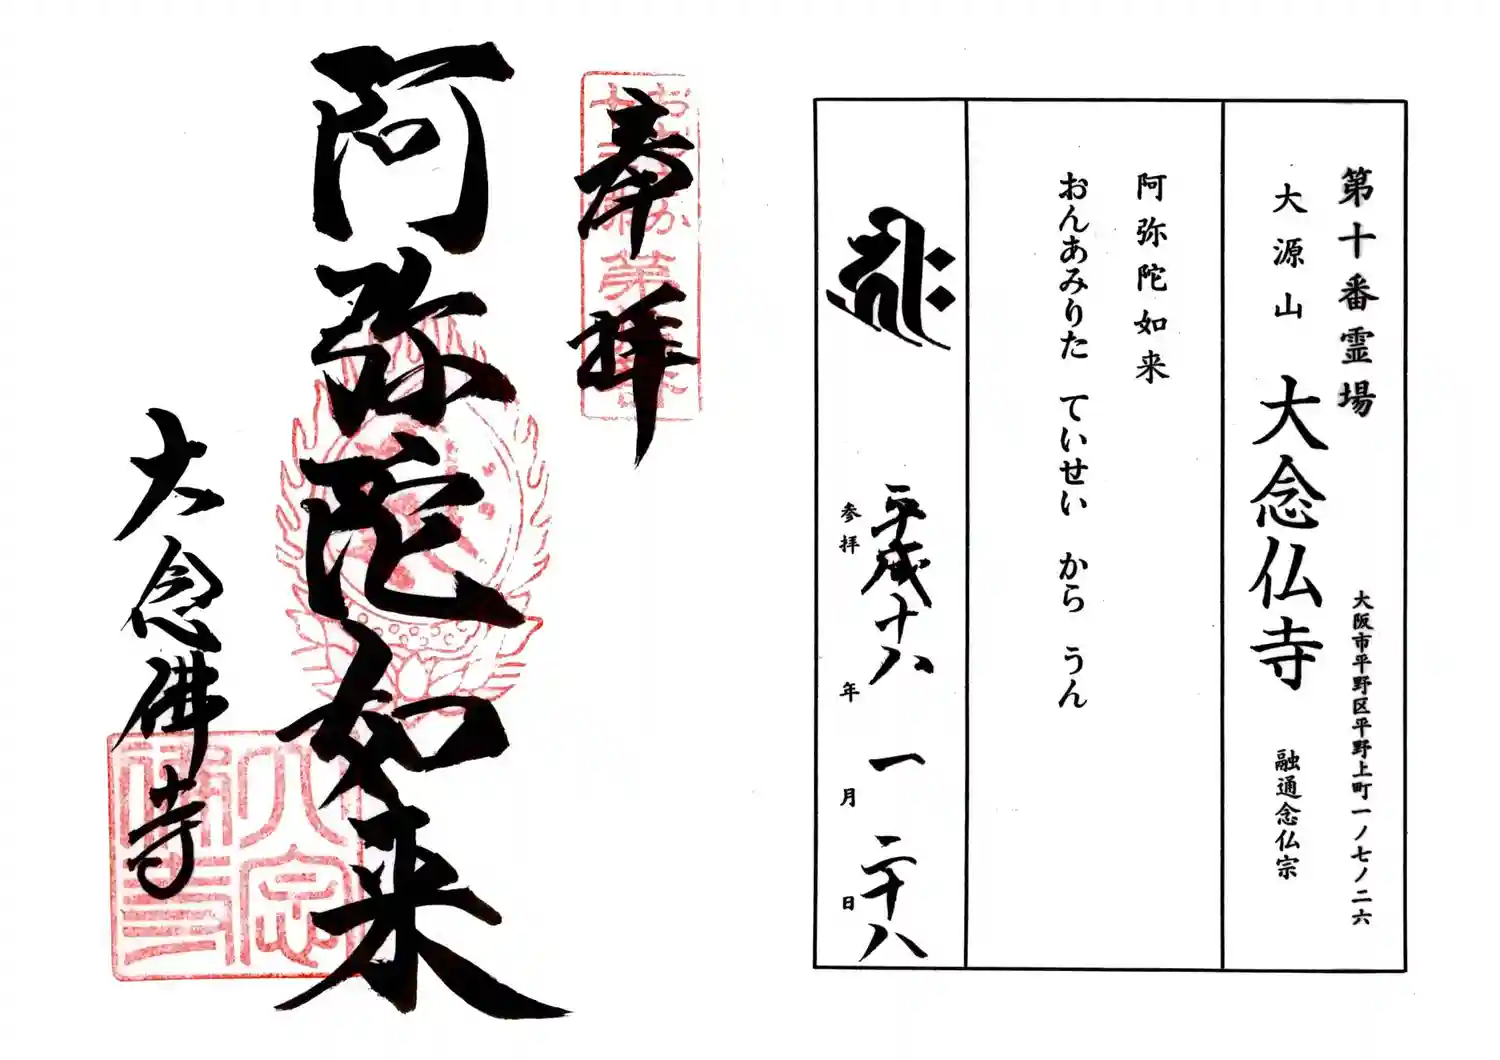 第十番霊場
大阪市平野区平野上町一ノ七ノ二六
大源山 大念仏寺 融通念仏宗
阿弥陀如来
おんあみりた ていせい から うん
平成十八年 一月 二十八日
参拝
奉拝
阿弥陀如来
大念佛寺